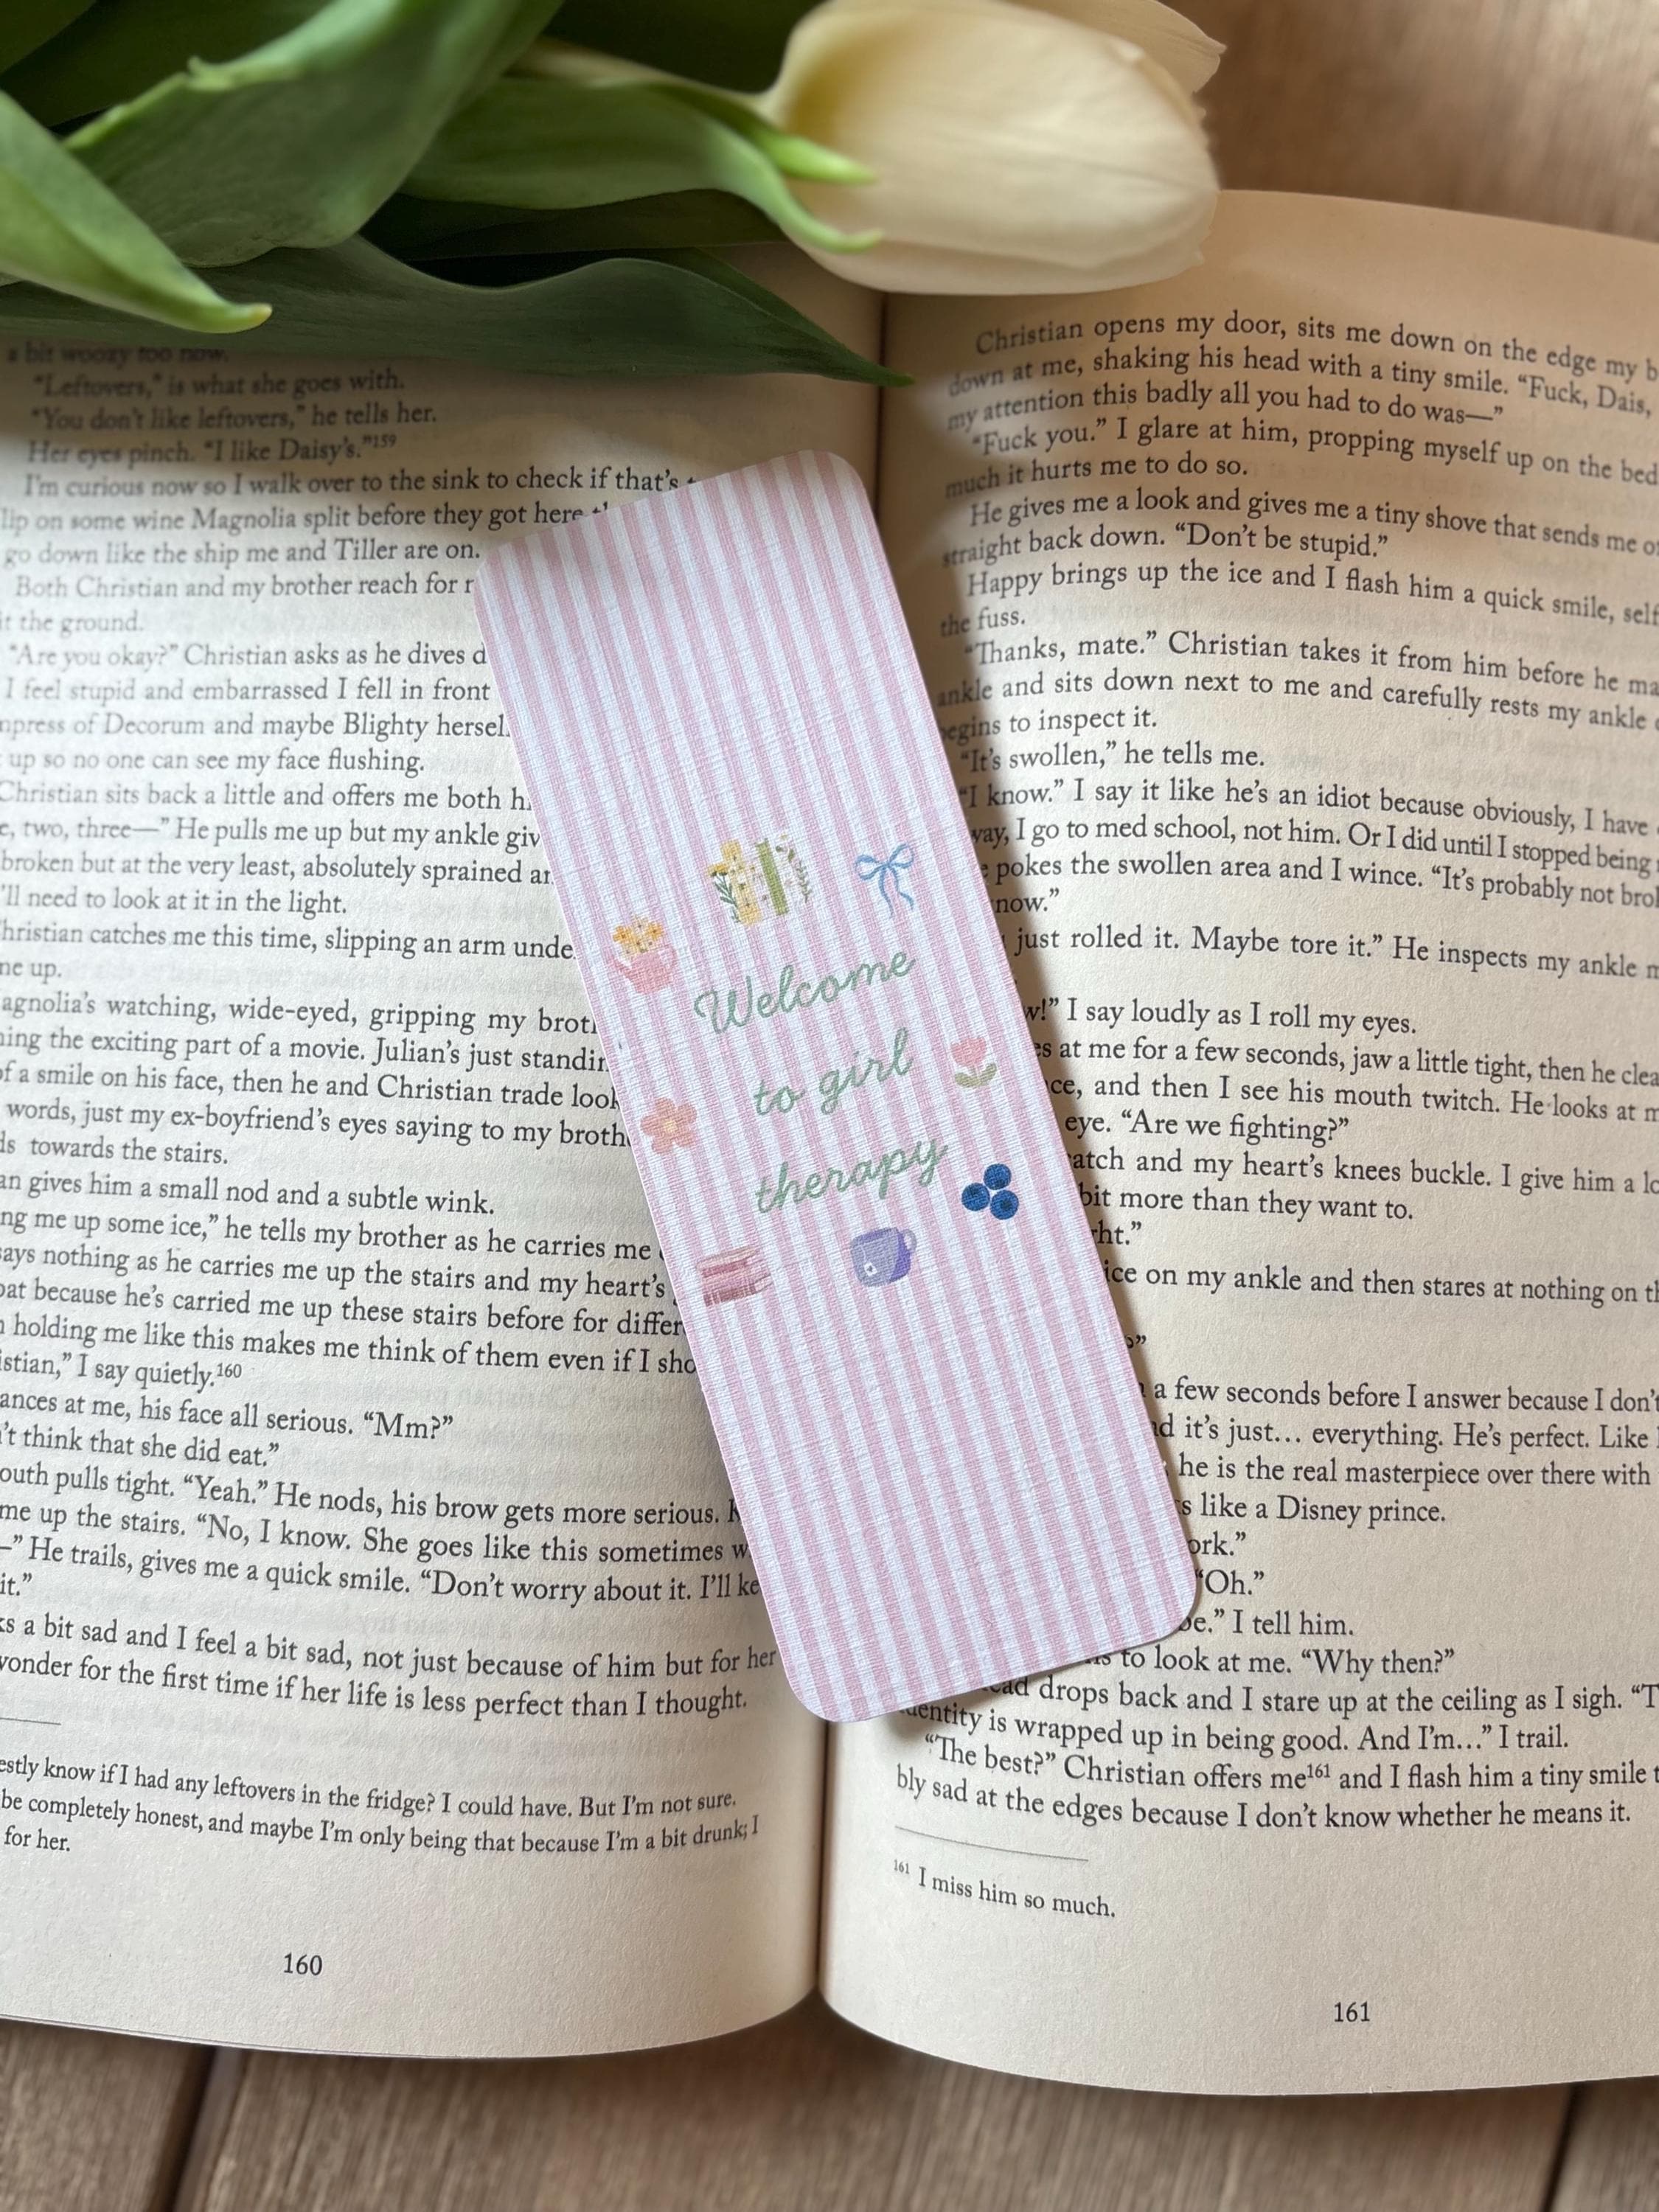 a bit woozy too now.
“Leftovers,” is what she goes with.
“You don’t like leftovers,” he tells her.
Her eyes pinch. “I like Daisy’s.”159
I’m curious now so I walk over to the sink to check if that’s
lip on some wine Magnolia split before they got here
go down like the ship me and Tiller are on.
Both Christian and my brother reach for
the ground.
“Are you okay?” Christian asks as he dives
I feel stupid and embarrassed I fell in front
of Decorum and maybe Blighty
up so no one can see my face flushing.
Christian sits back a little and offers me both
two, three—” He pulls me up but my ankle
broken but at the very least, absolutely sprained
’ll need to look at it in the light.
catches me this time, slipping an arm
me up.
watching, wide-eyed, gripping my
the exciting part of a movie. Julian’s just
of a smile on his face, then he and Christian trade
words, just my ex-boyfriend’s eyes saying to my
towards the stairs.
gives him a small nod and a subtle wink.
me up some ice,” he tells my brother as he carries me
says nothing as he carries me up the stairs and my heart’s
because he’s carried me up these stairs before for
holding me like this makes me think of them even if I
I say quietly.160
at me, his face all serious. “Mm?”
think that she did eat.”
pulls tight. “Yeah.” He nods, his brow gets more serious.
me up the stairs. “No, I know. She goes like this sometimes
—” He trails, gives me a quick smile. “Don’t worry about it. I’ll
it.”
a bit sad and I feel a bit sad, not just because of him but for her
wonder for the first time if her life is less perfect than I thought.
know if I had any leftovers in the fridge? I could have. But I’m not sure.
be completely honest, and maybe I’m only being that because I’m a bit drunk; I
for her.
160
Welcome
to girl
therapy
Christian opens my door, sits me down on the edge my
down at me, shaking his head with a tiny smile. “Fuck, Dais,
my attention this badly all you had to do was—”
“Fuck you.” I glare at him, propping myself up on the bed
much it hurts me to do so.
He gives me a look and gives me a tiny shove that sends me
straight back down. “Don’t be stupid.”
Happy brings up the ice and I flash him a quick smile,
the fuss.
“Thanks, mate.” Christian takes it from him before he
ankle and sits down next to me and carefully rests my ankle
begins to inspect it.
“It’s swollen,” he tells me.
“I know.” I say it like he’s an idiot because obviously, I have
I go to med school, not him. Or I did until I stopped being
pokes the swollen area and I wince. “It’s probably not
now.”
just rolled it. Maybe tore it.” He inspects my ankle
I say loudly as I roll my eyes.
at me for a few seconds, jaw a little tight, then he
and then I see his mouth twitch. He looks at
eye. “Are we fighting?”
and my heart’s knees buckle. I give him a
bit more than they want to.
ice on my ankle and then stares at nothing on
a few seconds before I answer because I don’t
it’s just… everything. He’s perfect. Like
he is the real masterpiece over there with
like a Disney prince.
“Oh.”
I tell him.
to look at me. “Why then?”
drops back and I stare up at the ceiling as I sigh.
identity is wrapped up in being good. And I’m…” I trail.
“The best?” Christian offers me161 and I flash him a tiny smile
bly sad at the edges because I don’t know whether he means it.
161 I miss him so much.
161